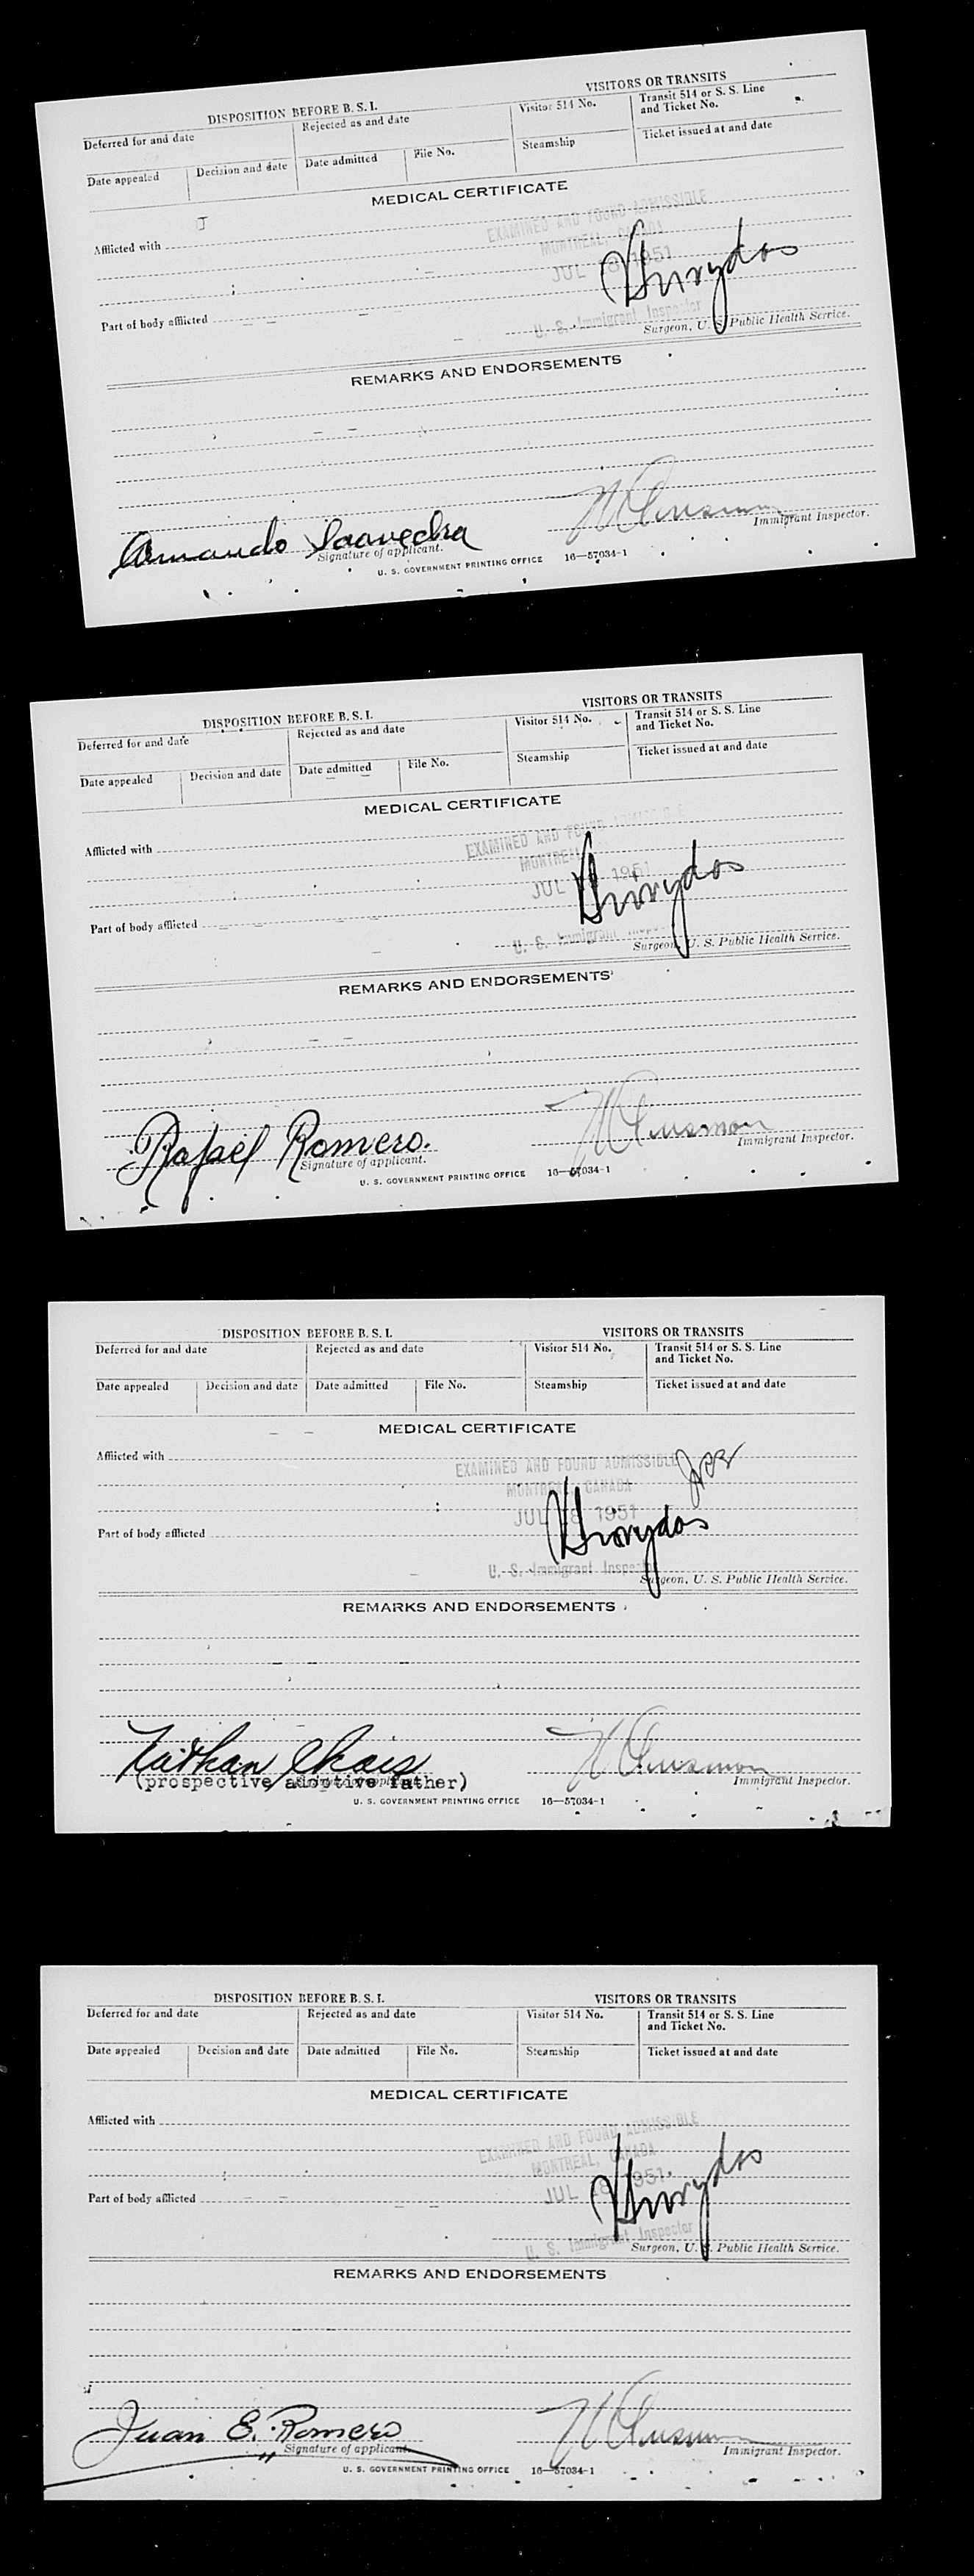 DISPOSITION BEFORE B. S. I. VISITORS OR TRANSITS
Deferred for and date Rejected as and date Visitor 514 No. Transit 514 or S. S. Line and Ticket No.
Date appealed Decision and date Date admitted File No. Steamship Ticket issued at and date
MEDICAL CERTIFICATE
Afflicted with
EXAMINED AND FOUND ADMISSIBLE
MONTREAL, CANADA
JUL 1951
Part of body afflicted
U. S. Immigrant Inspector
Surgeon, U. S. Public Health Service.
REMARKS AND ENDORSEMENTS
Armando Saavedra
Signature of applicant. Immigrant Inspector.
U. S. GOVERNMENT PRINTING OFFICE 16—57034-1
DISPOSITION BEFORE B. S. I. VISITORS OR TRANSITS
Deferred for and date Rejected as and date Visitor 514 No. Transit 514 or S. S. Line and Ticket No.
Date appealed Decision and date Date admitted File No. Steamship Ticket issued at and date
MEDICAL CERTIFICATE
Afflicted with
EXAMINED AND FOUND
MONTREAL
JUL 1951
Part of body afflicted
U. S. Immigrant
Surgeon, U. S. Public Health Service.
REMARKS AND ENDORSEMENTS
Rafael Romero.
Signature of applicant. Immigrant Inspector.
U. S. GOVERNMENT PRINTING OFFICE 16—57034-1
DISPOSITION BEFORE B. S. I. VISITORS OR TRANSITS
Deferred for and date Rejected as and date Visitor 514 No. Transit 514 or S. S. Line and Ticket No.
Date appealed Decision and date Date admitted File No. Steamship Ticket issued at and date
MEDICAL CERTIFICATE
Afflicted with
EXAMINED AND FOUND ADMISSIBLE
MONTREAL, CANADA
JUL 1951
Part of body afflicted
U. S. Immigrant Inspector
Surgeon, U. S. Public Health Service.
REMARKS AND ENDORSEMENTS
Nathan Chais
(prospective adoptive father) Immigrant Inspector.
U. S. GOVERNMENT PRINTING OFFICE 16—57034-1
DISPOSITION BEFORE B. S. I. VISITORS OR TRANSITS
Deferred for and date Rejected as and date Visitor 514 No. Transit 514 or S. S. Line and Ticket No.
Date appealed Decision and date Date admitted File No. Steamship Ticket issued at and date
MEDICAL CERTIFICATE
Afflicted with
EXAMINED AND FOUND ADMISSIBLE
MONTREAL, CANADA
JUL 1951
Part of body afflicted
U. S. Immigrant Inspector
Surgeon, U. S. Public Health Service.
REMARKS AND ENDORSEMENTS
Juan E. Romero
Signature of applicant. Immigrant Inspector.
U. S. GOVERNMENT PRINTING OFFICE 16—57034-1